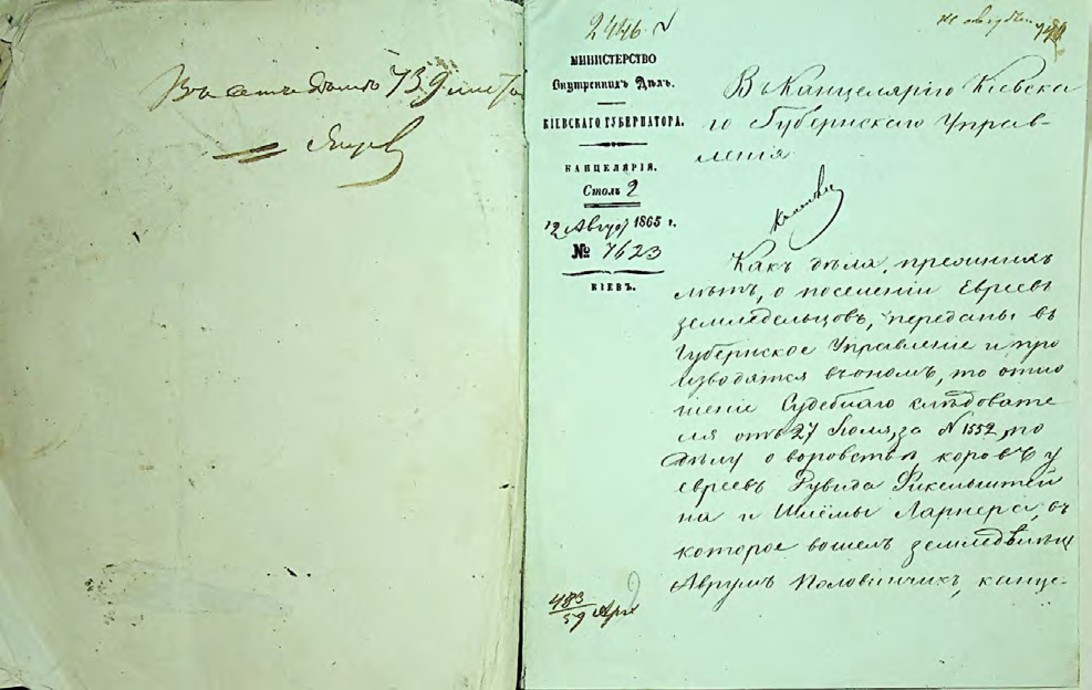 739
2446
МИНИСТЕРСТВО
Внутреннихъ Дѣлъ.
КІЕВСКАГО ГУБЕРНАТОРА.
КАНЦЕЛЯРІЯ.
Столъ 2
12 Август 1865 г.
№ 7623
КІЕВЪ.
Въ Канцелярію Кіевска
го Губернскаго Управ-
ленія
Какъ дѣла,
о поселеніи Евреевъ
земледельцовъ, переданы въ
Губернское Управленіе и про
изводятся въ ономъ, то отно
шеніе Судебнаго слѣдовате
ля отъ 27 Іюля, за N 1552, по
дѣлу о воровствѣ коровъ у
евреевъ Рувина Фикельштей
на и Шлёмы Ларнера, въ
которое вошелъ
Аврумъ Половинчикъ, канце-
483
59